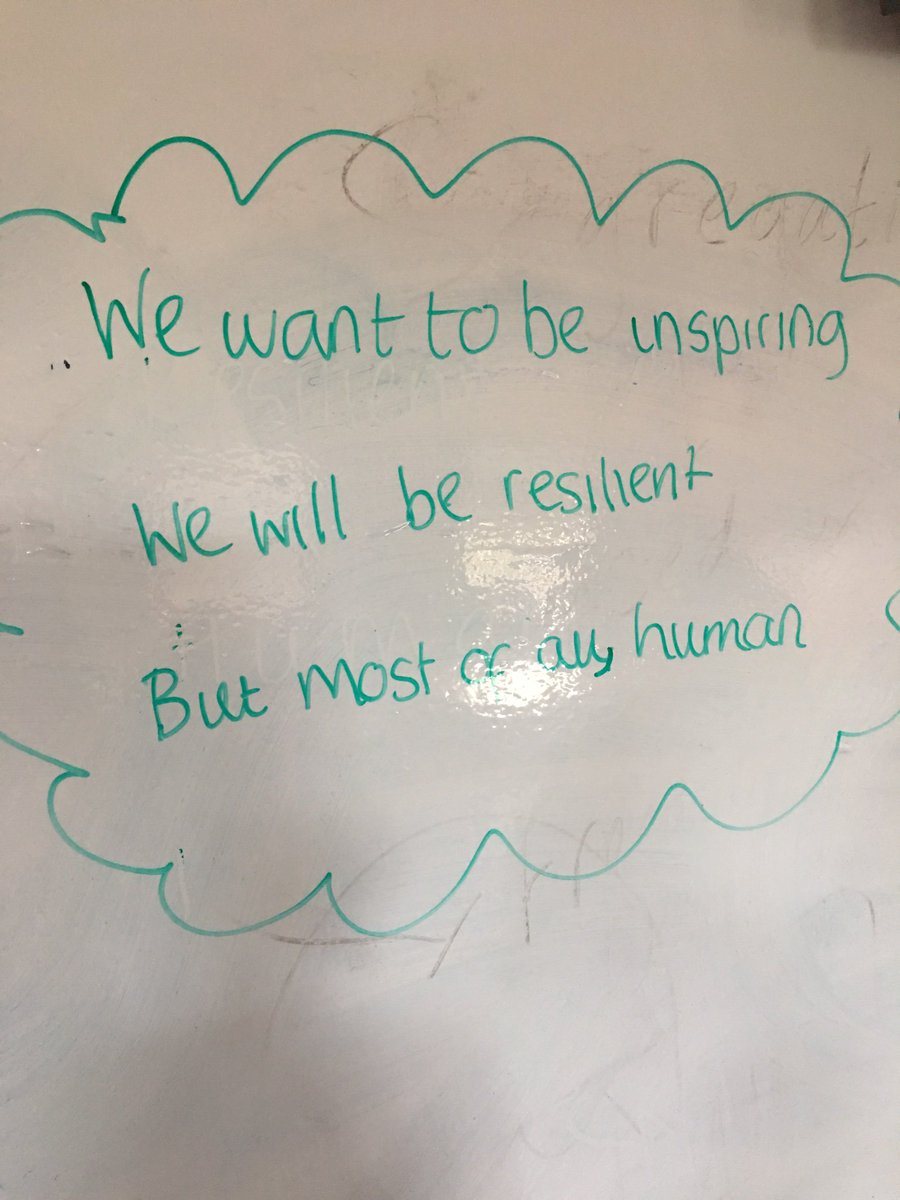 We want to be inspiring
We will be resilient
But most of all, human